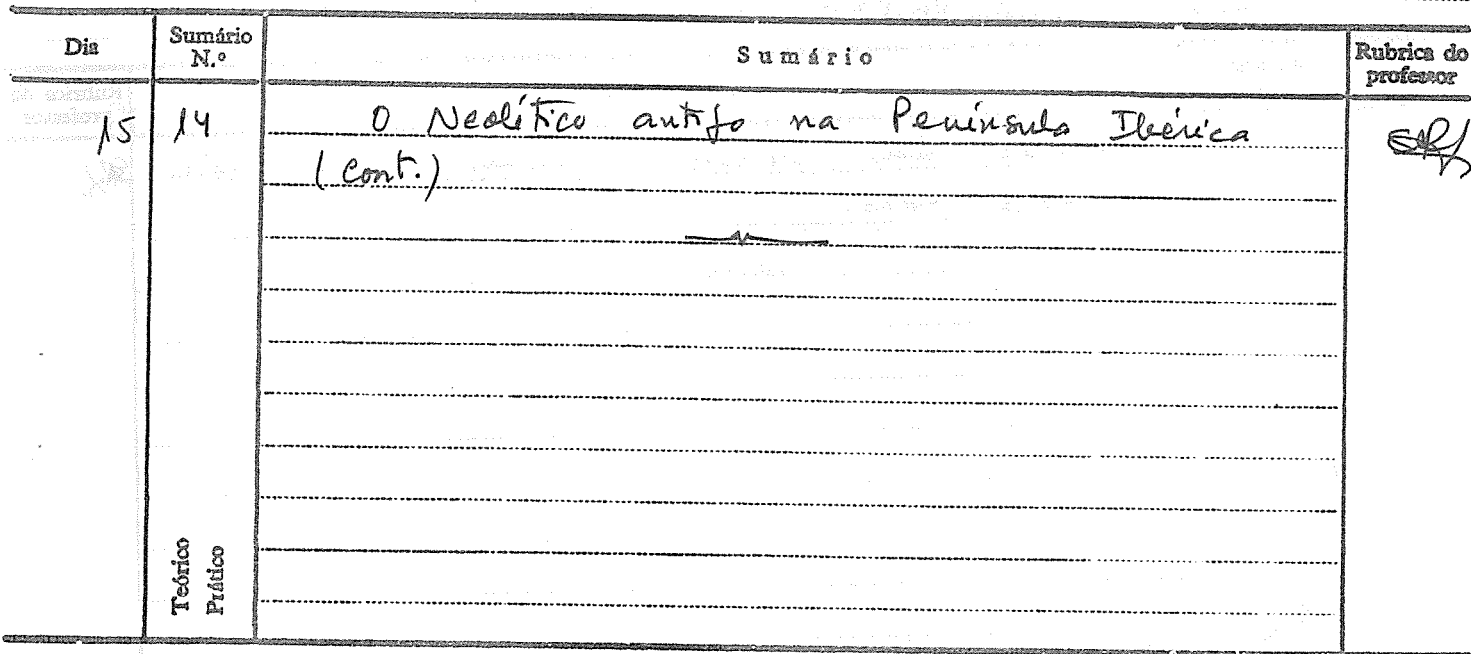 Dia
Sumário
N.º
Sumário
Rubrica do
professor
15
14
O Neolítico antigo na Península Ibérica
(Cont.)
Teórico
Prático